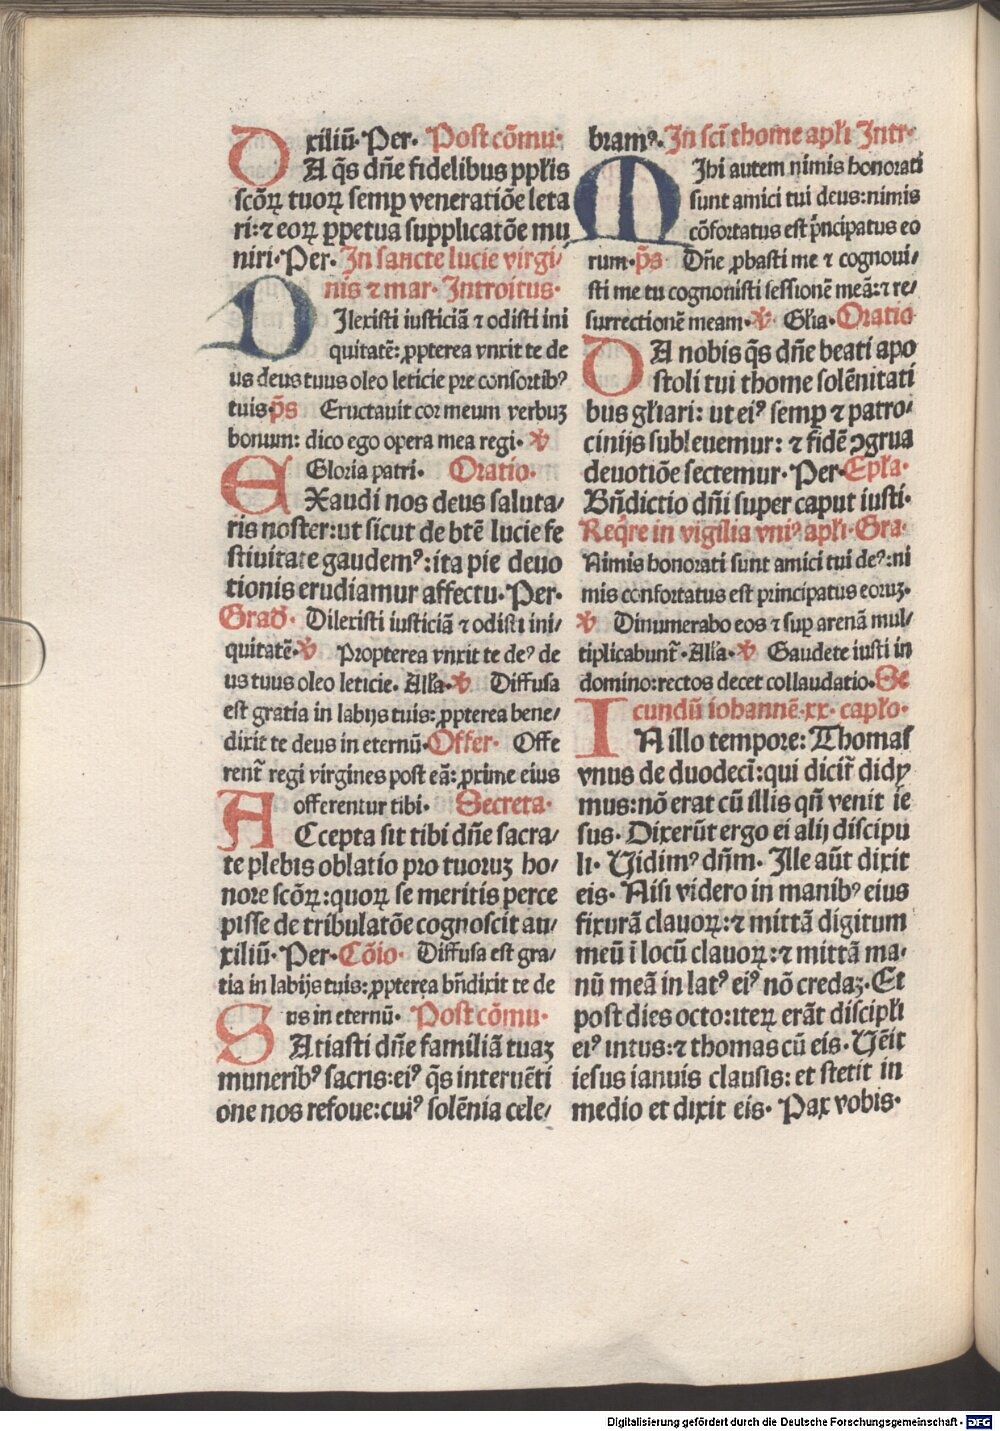 xiliū· Per· Post cōmu·
DA q̄s dn̄e fidelibus ppl̄is
scōꝝ tuoꝝ semꝑ veneratiōe leta
ri: ⁊ eoꝝ ꝑpetua supplicatōe mu
niri· Per· In sancte lucie virgi/
nis ⁊ mar· Introitus·
DIlexisti iusticiā ⁊ odisti ini
quitatē: ꝓpterea vnxit te de
us deus tuus oleo leticie pre consortibꝰ
tuis· p̄s Eructauit cor meum verbuꝫ
bonum: dico ego opera mea regi· ℣
Gloria patri· Oratio·
EXaudi nos deus saluta/
ris noster: ut sicut de btē lucie fe
stiuitate gaudemꝰ: ita pie deuo
tionis erudiamur affectu· Per·
Grad̄· Dilexisti iusticiā ⁊ odisti ini/
quitatē· ℣ Propterea vnxit te deꝰ de
us tuus oleo leticie· All̄a· ℣ Diffusa
est gratia in labijs tuis: ꝓpterea bene/
dixit te deus in eternū· Offer· Offe
rent̄ regi virgines post eā: ꝓxime eius
offerentur tibi· Secreta·
ACcepta sit tibi dn̄e sacra/
te plebis oblatio pro tuoruꝫ ho/
nore scōꝝ: quoꝝ se meritis perce
pisse de tribulatōe cognoscit au/
xiliū· Per· Cōio· Diffusa est gra/
tia in labijs tuis: ꝓpterea bn̄dixit te de
us in eternū· Post cōmu·
SAtiasti dn̄e familiā tuaꝫ
muneribꝰ sacris: eiꝰ q̄s interuēti
one nos refoue: cuiꝰ solēnia cele/
bramꝰ· In scī thome apl̄i Intr·
MIhi autem nimis honorati
sunt amici tui deus: nimis
cōfortatus est pⁱncipatus eo
rum· p̄s Dn̄e ꝓbasti me ⁊ cognoui/
sti me tu cognouisti sessionē meā: ⁊ re/
surrectionē meam· ℣ Gl̄ia· Oratio
DA nobis q̄s dn̄e beati apo
stoli tui thome solēnitati
bus gl̄iari: ut eiꝰ semꝑ ⁊ patro/
cinijs subleuemur: ⁊ fidē ꝯgrua
deuotiōe sectemur· Per· Epl̄a·
Bn̄dictio dn̄i super caput iusti·
Reqⁱre in vigilia vniꝰ apl̄i· Gra·
Nimis honorati sunt amici tui deꝰ: ni
mis confortatus est principatus eoruꝫ·
℣ Dinumerabo eos ⁊ suꝑ arenā mul/
tiplicabunt̄· All̄a· ℣ Gaudete iusti in
domino: rectos decet collaudatio· Se
cundū iohannē· xx· capl̄o·
IN illo tempore: Thomas
vnus de duodecī: qui dicit̄ didy
mus: nō erat cū illis qn̄ venit ie
sus· Dixerūt ergo ei alij discipu
li· Vidimꝰ dn̄m· Ille aūt dixit
eis· Nisi videro in manibꝰ eius
fixurā clauoꝝ: ⁊ mittā digitum
meū ī locū clauoꝝ: ⁊ mittā ma·
nū meā in latꝰ eiꝰ nō credaꝫ· Et
post dies octo: iteꝝ erāt discipl̄i
eiꝰ intus: ⁊ thomas cū eis· Vēit
iesus ianuis clausis: et stetit in
medio et dixit eis· Pax vobis·
Digitalisierung gefördert durch die Deutsche Forschungsgemeinschaft - DFG